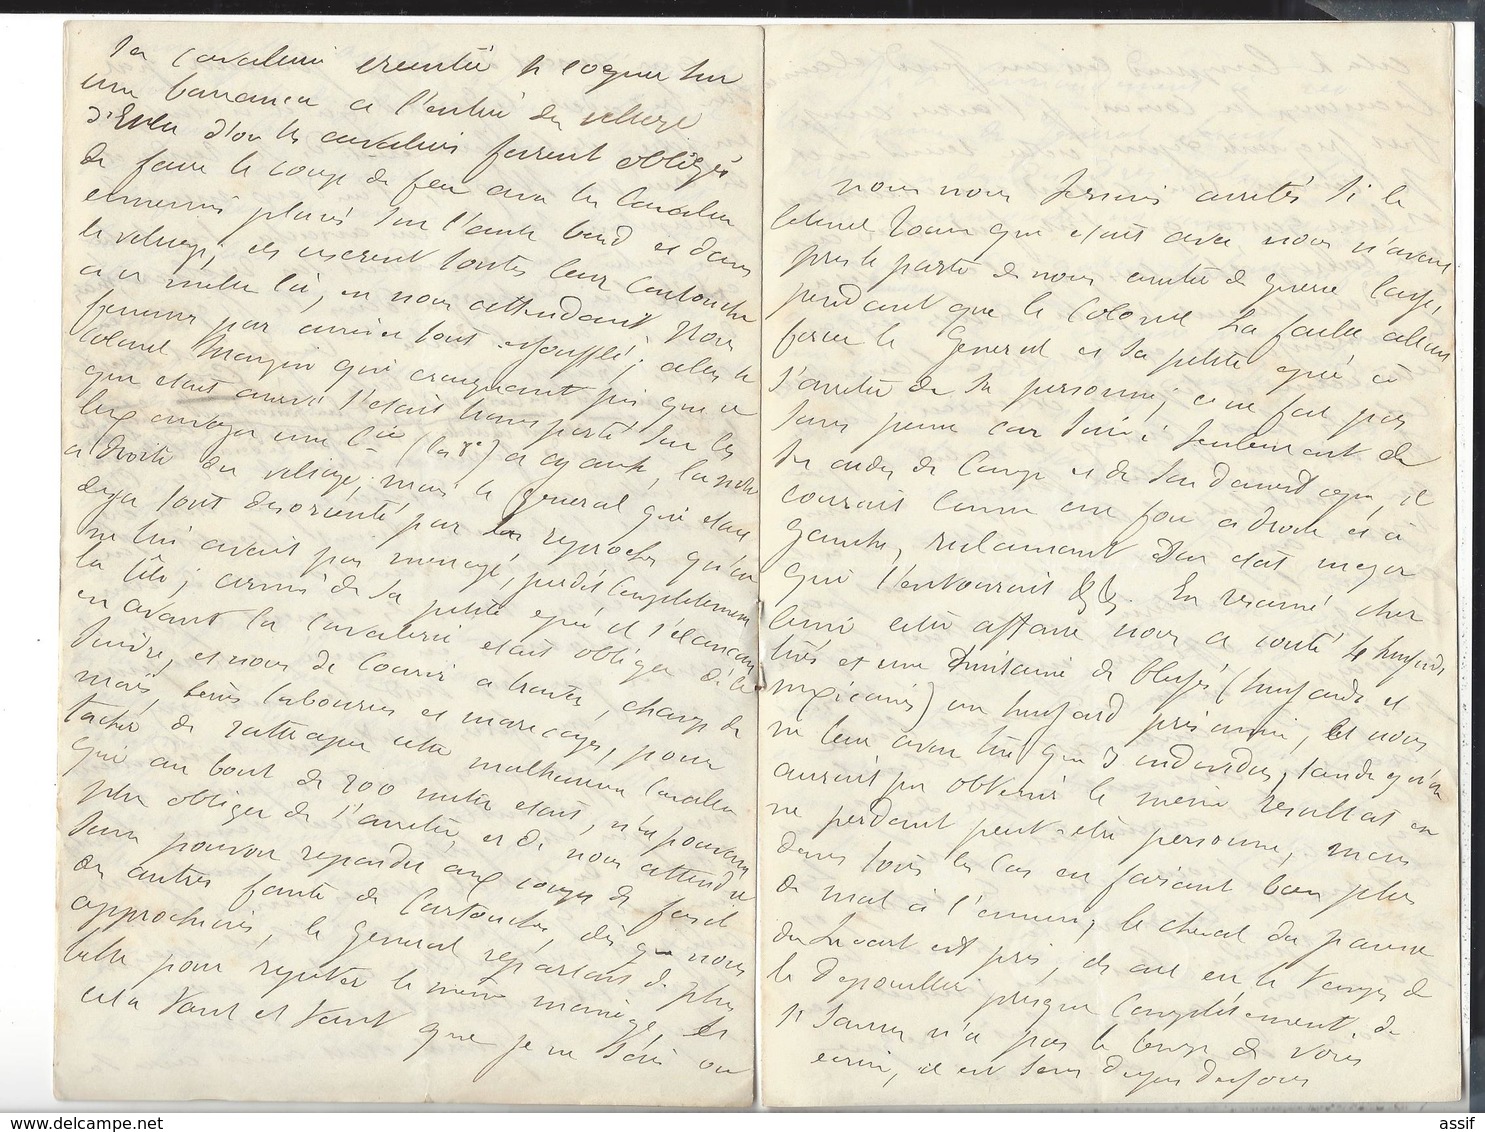 la cavalerie ereintée se cogner sur
une barranca a l'entrée du village
d'où les cavaliers furent obligés
de faire le coup de feu avec les cavaliers
ennemis placés sur l'autre bord et dans
le village, ils userent toutes leur cartouches
a ce métier là, en nous attendant. Nous
par arriver tout essoufflé; alors le
Colonel Mangin qui craignant pis que ce
qui etait arrivé s'etait transporté sur les
lieux envoya une Cie (la 8e)
a droite du village; mais le general qui etait
deja tout desorienté par les reproches qu'on
ne lui avait pas menagé, perdit completement
la tête; armé de sa petite epée il s'elancait
en avant la cavalerie etait obligée de le
suivre, et nous de courir a travers, champs de
mais, terres labourées et marecages, pour
tacher de rattraper cette malheureuse cavalerie
qui au bout de 200 metres etait, n'en pouvant
plus obligée de s'arrêter, et de nous attendre
sans pouvoir repondre aux coups de fusil
des autres faute de cartouches, dès que nous
approchions, le general repartait de plus
belle pour repeter le même manège, et
cela tant et tant que je ne sais ou
nous nous serions arretés si le
colonel qui etait avec nous n'avait
pris le parti de nous arreter de guerre lasse,
pendant que le Colonel allait
forcer le General et sa petite epée à
s'arrêter de sa personne; ce ne fut pas
sans peine car suivi seulement de
ses aides de Camp et de son domestique, il
courait comme un fou a droite et à
gauche, reclamant son etat major
qui l'entourait. En resumé cher
ami cette affaire nous a couté 4 hussards
tués et une trentaine de blessés (hussards et
mexicains) un hussard prisonnier, et nous
ne leur avons tué que 3 individus, tandis qu'on
aurait pu obtenir le même resultat en
ne perdant peut-etre personne, mais
dans tous les cas en faisant bien plus
de mal à l'ennemi; le cheval du pauvre
est pris, ils ont eu le temps de
le depouiller presque completement. de
n'a pas le temps de vous
ecrire, il est
assif